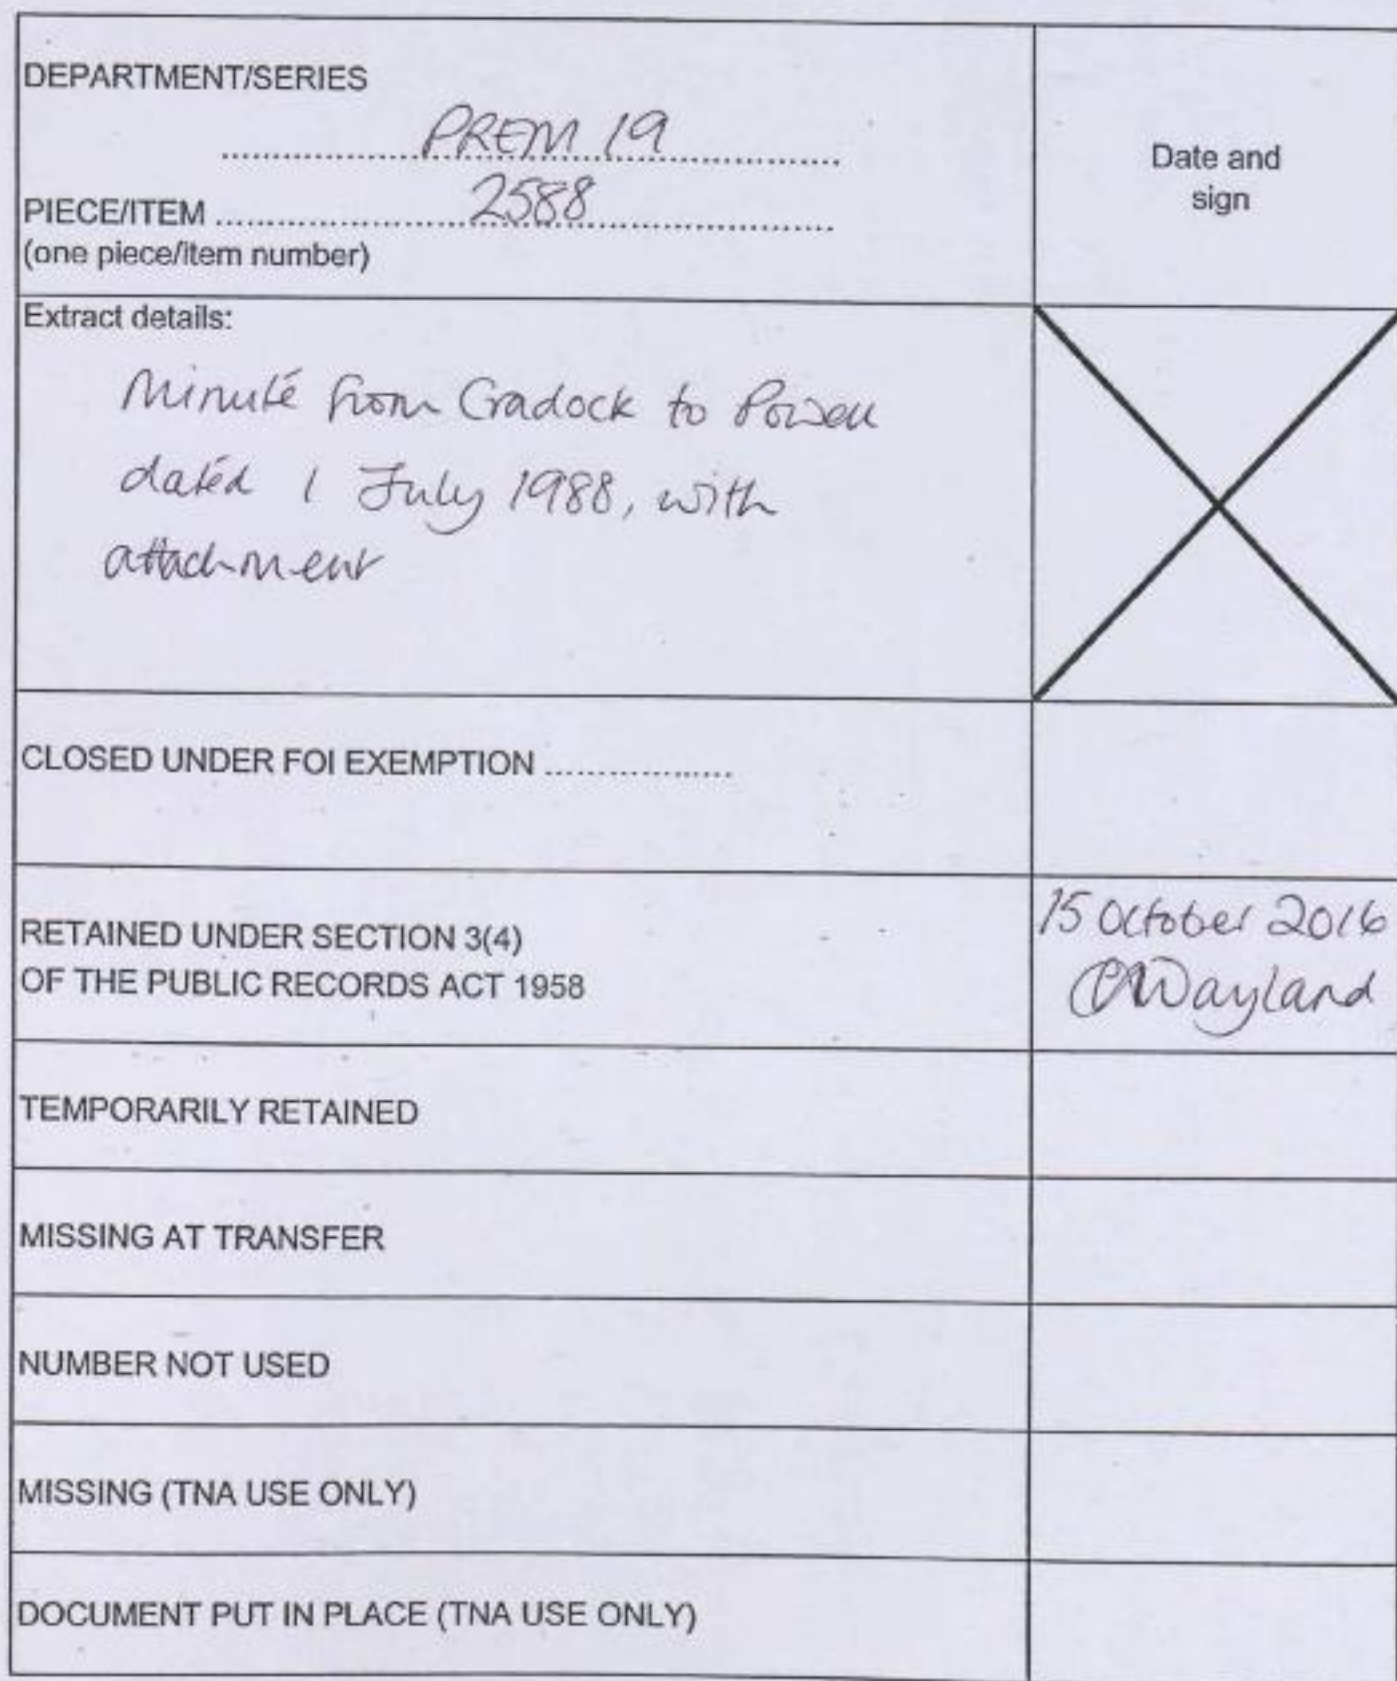 DEPARTMENT/SERIES
PREM 19
Date and
sign
PIECE/ITEM ............ 2588 ............
(one piece/item number)
Extract details:
Minute from Cradock to Powell
dated 1 July 1988, with
attachment
CLOSED UNDER FOI EXEMPTION ..................
RETAINED UNDER SECTION 3(4)
OF THE PUBLIC RECORDS ACT 1958
15 October 2016
Wayland
TEMPORARILY RETAINED
MISSING AT TRANSFER
NUMBER NOT USED
MISSING (TNA USE ONLY)
DOCUMENT PUT IN PLACE (TNA USE ONLY)